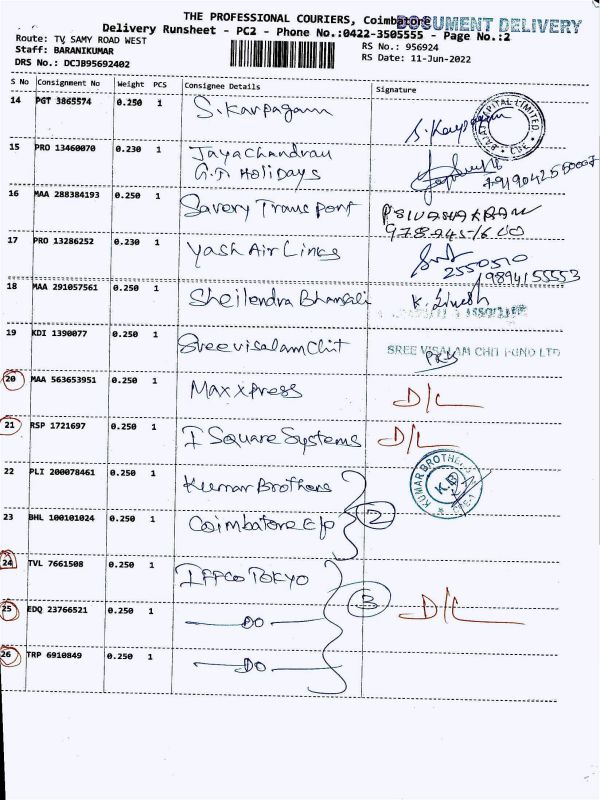 THE PROFESSIONAL COURIERS, Coimbatore
DOCUMENT DELIVERY
Delivery Runsheet - PC2 - Phone No.:0422-3505555 - Page No.:2
Route: TV SAMY ROAD WEST
RS No.: 956924
Staff: BARANIKUMAR
RS Date: 11-Jun-2022
DRS No.: DCJB95692402
S No Consignment No Weight PCS Consignee Details Signature
14 PGT 3865574 0.250 1 S. Karpagam S. Karpagam
CAPITAL LIMITED
15 PRO 13460070 0.230 1 Jayachandran
G.T. HoliDays
16 MAA 288384193 0.250 1 Savery Transport
17 PRO 13286252 0.230 1 Yash Air Lines
2550510
9894155553
18 MAA 291057561 0.250 1 Sheilendra Bhansali K. Dinesh
19 KDI 1390077 0.250 1 Sree visalam Chit SREE VISALAM CHIT FUND LTD
20 MAA 563653951 0.250 1 Maxxpress D/L
21 RSP 1721697 0.250 1 I Square Systems D/L
22 PLI 200078461 0.250 1 Kumar Brothers
KUMAR BROTHERS
23 BHL 100101024 0.250 1 Coimbatore E/p 2
24 TVL 7661508 0.250 1 IFFCO TOKYO
25 EDQ 23766521 0.250 1 DO 3 D/L
26 TRP 6910849 0.250 1 DO